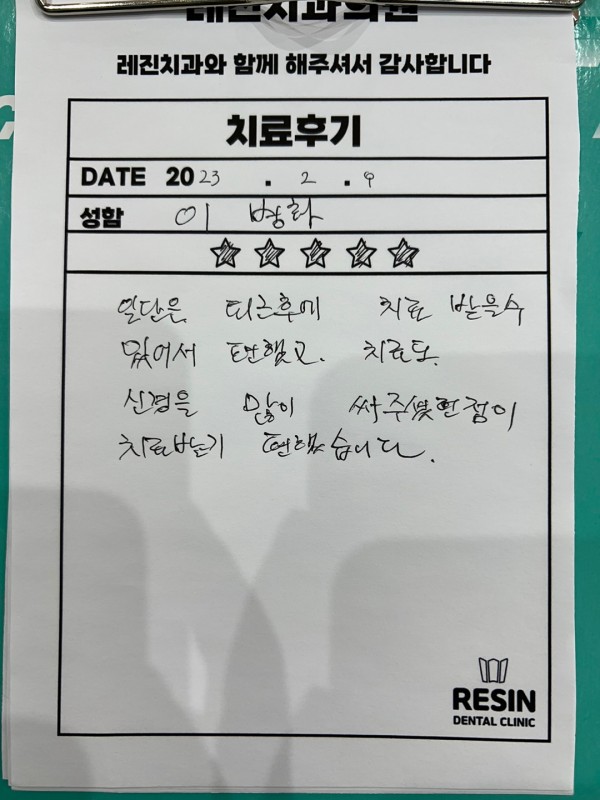 레진치과의원
레진치과와 함께 해주셔서 감사합니다
치료후기
DATE 2023 . 2 . 9
성함 이 병화
일단은 퇴근후에 치료 받을수
있어서 편했고. 치료도.
신경을 많이 써주셨던점이
치료받는기 편했습니다.
RESIN
DENTAL CLINIC